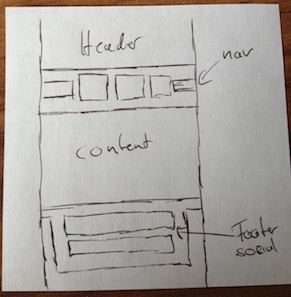 Header
nav
content
Footer
social